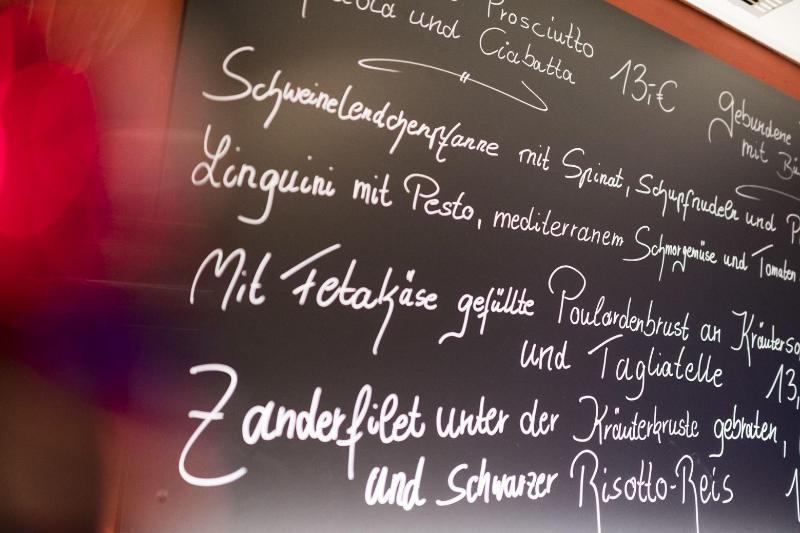 und Prosciutto
Ciabatta 13,-€
gebundene
mit
Schweinelendchenpfanne mit Spinat, Schupfnudeln und
Linguini mit Pesto, mediterranem Schmorgemüse und Tomaten
Mit Fetakäse gefüllte Poulardenbrust an
und Tagliatelle 13,
Zanderfilet unter der Kräuterkruste gebraten,
und Schwarzer Risotto-Reis